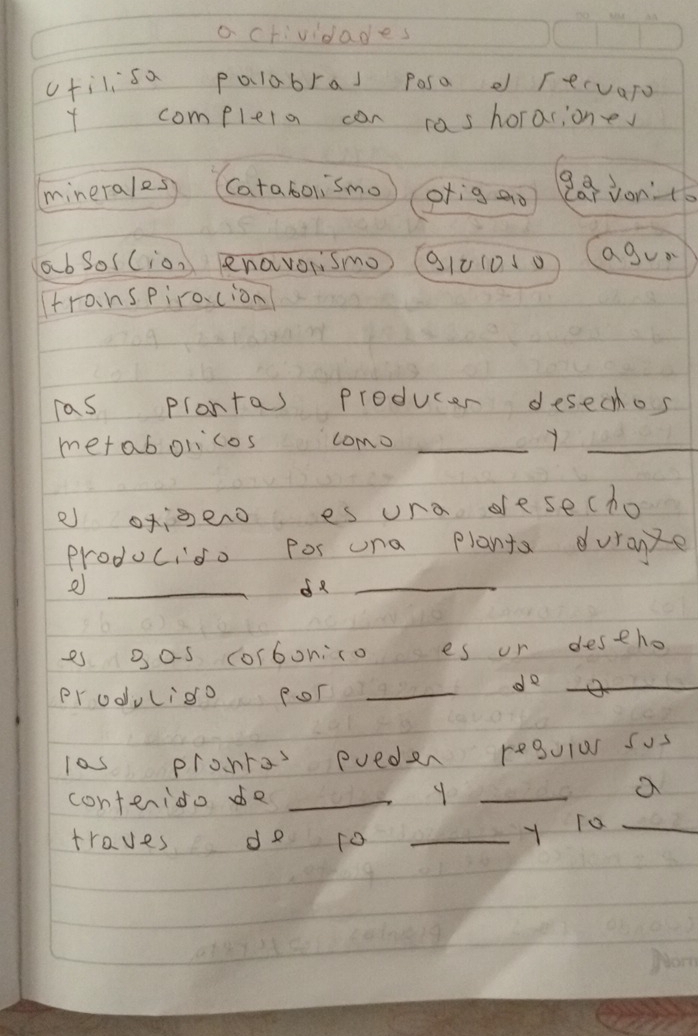 actividades
utilisa palabras para el recuaro
y complera con ras horaciones
minerales catabolismo oxigeno gas carvonito
absorcion enavolismo glucosa agua
transpiracion
ras plantas producen desechos
metabolicos como ______ y ______
el oxigeno es una desecho
producido por una planta durante
el ______ de ______
es gas carbonico es un deseho
producido por ______ de ______
las plantas pueden regular sus
contenido de ______ y ______ a
traves de ra ______ y la ______
Norm